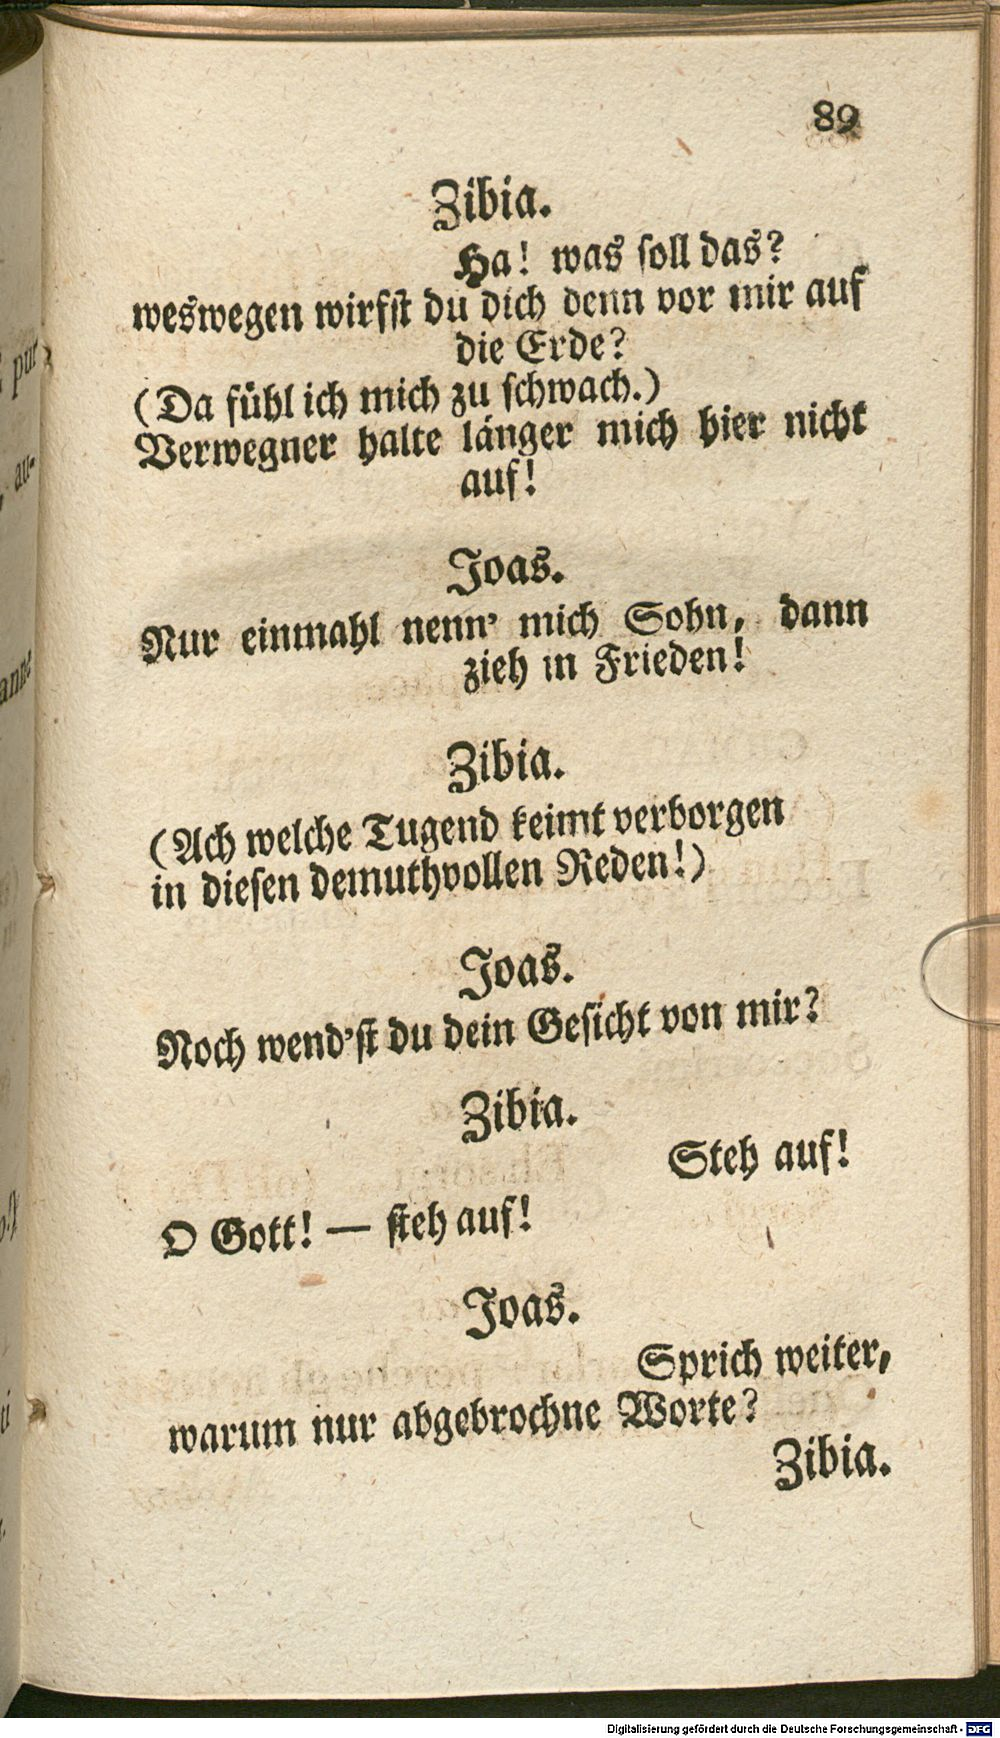 89
Zibia.
Ha! was soll das?
weswegen wirfst du dich denn vor mir auf
die Erde?
(Da fühl ich mich zu schwach.)
Verwegner halte länger mich hier nicht
auf!
Joas.
Nur einmahl nenn' mich Sohn, dann
zieh in Frieden!
Zibia.
(Ach welche Tugend keimt verborgen
in diesen demuthvollen Reden!)
Joas.
Noch wend'st du dein Gesicht von mir?
Zibia.
Steh auf!
O Gott! — steh auf!
Joas.
Sprich weiter,
warum nur abgebrochne Worte?
Zibia.
Digitalisierung gefördert durch die Deutsche Forschungsgemeinschaft - DFG